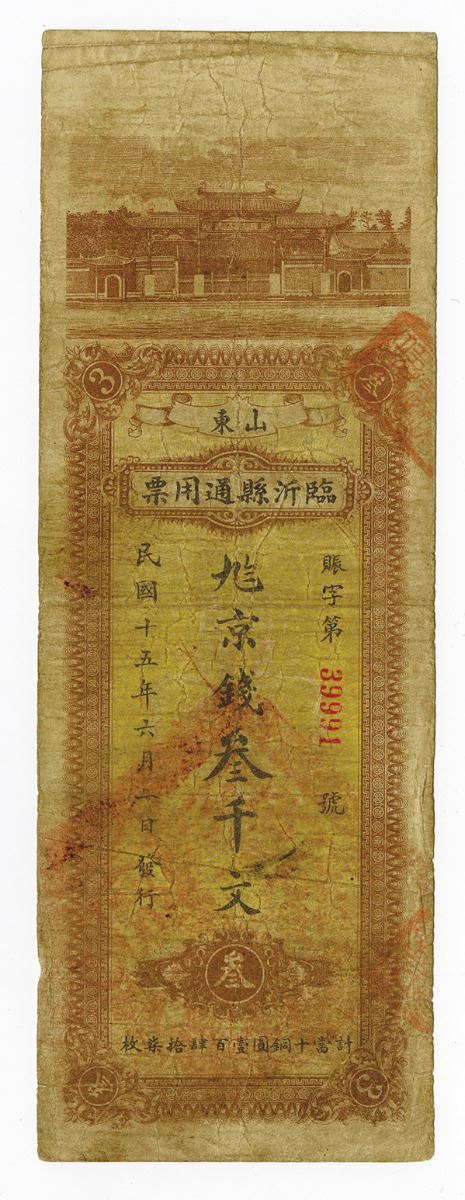 3
叁
山東
臨沂縣通用票
賑字第39991號
九八京錢叁千文
民國十五年六月一日發行
叁
計當十銅圓壹百肆拾柒枚
叁
3